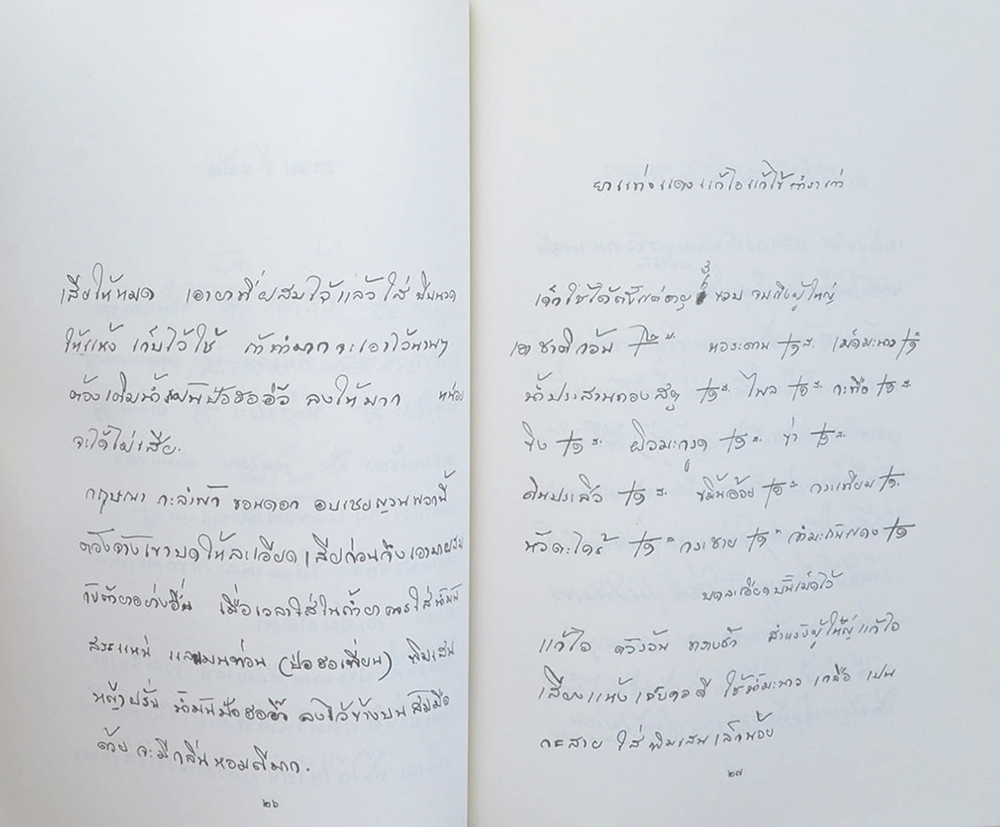 เสียให้หมด เอายาที่ผสมไว้แล้ว ใส่
ให้แห้ง เก็บไว้ใช้ ถ้าทำมากจะเอาไว้นานๆ
ต้องเติมน้ำมันปัวฮออิ๊ว ลงให้มาก หน่อย
จะได้ไม่เสีย.
กฤษณา กะลำพัก ขอนดอก อบเชยญวนพวกนี้
ต้องจ้างเขาบดให้ละเอียด เสียก่อนถึงเอามาผสม
กับตัวยาอย่างอื่น เมื่อเวลาใส่ในถ้ำยาควรใส่น้ำมัน
สะระแหน่ และเมนท่อน (ป๋อฮอเทียน) พิมเสน
หญ้าฝรั่น น้ำมันป๋อฮออิ๊ว ลงไว้ข้างบน
ด้วย จะมีกลิ่นหอมดีมาก.
๒๖
ยาแท่งแดงแก้ไอแก้ไข้ตำราเก่า
เด็กใช้ได้ตั้งแต่อายุ ๓ ขวบ จนถึงผู้ใหญ่
เอาชาดก้อน หอระดาน ๑ ส. เม็ดมะนาว ๑
น้ำประสานทองสตุ ๑ ส. ไพล ๑ ส. กะทือ ๑ ส.
ขิง ๑ ส. ผิวมะกรูด ๑ ส. ข่า ๑ ส.
ดินประสิว ๑ ส. ขมิ้นอ้อย ๑ ส. กระเทียม ๑ ส.
หัวตะไคร้ ๑ ส. กระชาย ๑ ส. กำมะถันแดง ๑
บดละเอียดปั้นเม็ดไว้
แก้ไอ ตัวร้อน ทรางซ้ำ สำหรับผู้ใหญ่แก้ไอ
เสียงแห้ง เจ็บคอดี ใช้น้ำมะนาว เกลือ เปน
กระสาย ใส่พิมเสนเล็กน้อย
๒๗